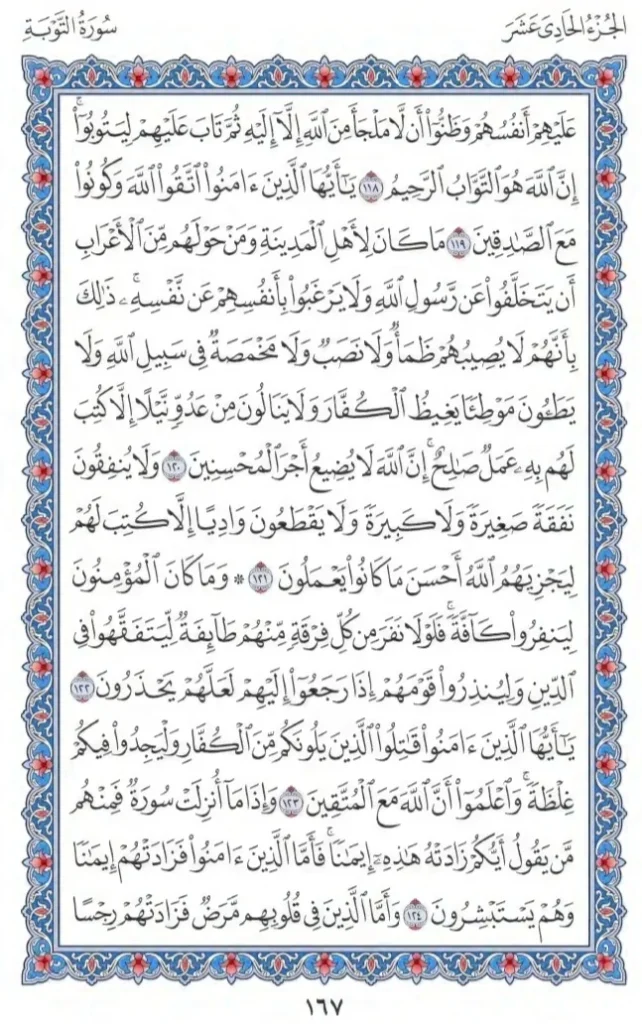 الجُزْءُ الحَادِى عَشَرَ
سُورَةُ التَّوْبَةِ
عَلَيْهِمْ أَنفُسُهُمْ وَظَنُّوٓا۟ أَن لَّا مَلْجَأَ مِنَ ٱللَّهِ إِلَّآ إِلَيْهِ ثُمَّ تَابَ عَلَيْهِمْ لِيَتُوبُوٓا۟ۚ
إِنَّ ٱللَّهَ هُوَ ٱلتَّوَّابُ ٱلرَّحِيمُ ١١٨ يَـٰٓأَيُّهَا ٱلَّذِينَ ءَامَنُوا۟ ٱتَّقُوا۟ ٱللَّهَ وَكُونُوا۟
مَعَ ٱلصَّـٰدِقِينَ ١١٩ مَا كَانَ لِأَهْلِ ٱلْمَدِينَةِ وَمَنْ حَوْلَهُم مِّنَ ٱلْأَعْرَابِ
أَن يَتَخَلَّفُوا۟ عَن رَّسُولِ ٱللَّهِ وَلَا يَرْغَبُوا۟ بِأَنفُسِهِمْ عَن نَّفْسِهِۦۚ ذَٰلِكَ
بِأَنَّهُمْ لَا يُصِيبُهُمْ ظَمَأٌ وَلَا نَصَبٌ وَلَا مَخْمَصَةٌ فِى سَبِيلِ ٱللَّهِ وَلَا
يَطَـُٔونَ مَوْطِئًا يَغِيظُ ٱلْكُفَّارَ وَلَا يَنَالُونَ مِنْ عَدُوٍّ نَّيْلًا إِلَّا كُتِبَ
لَهُم بِهِۦ عَمَلٌ صَـٰلِحٌۚ إِنَّ ٱللَّهَ لَا يُضِيعُ أَجْرَ ٱلْمُحْسِنِينَ ١٢٠ وَلَا يُنفِقُونَ
نَفَقَةً صَغِيرَةً وَلَا كَبِيرَةً وَلَا يَقْطَعُونَ وَادِيًا إِلَّا كُتِبَ لَهُمْ
لِيَجْزِيَهُمُ ٱللَّهُ أَحْسَنَ مَا كَانُوا۟ يَعْمَلُونَ ١٢١ * وَمَا كَانَ ٱلْمُؤْمِنُونَ
لِيَنفِرُوا۟ كَآفَّةًۚ فَلَوْلَا نَفَرَ مِن كُلِّ فِرْقَةٍ مِّنْهُمْ طَآئِفَةٌ لِّيَتَفَقَّهُوا۟ فِى
ٱلدِّينِ وَلِيُنذِرُوا۟ قَوْمَهُمْ إِذَا رَجَعُوٓا۟ إِلَيْهِمْ لَعَلَّهُمْ يَحْذَرُونَ ١٢٢
يَـٰٓأَيُّهَا ٱلَّذِينَ ءَامَنُوا۟ قَـٰتِلُوا۟ ٱلَّذِينَ يَلُونَكُم مِّنَ ٱلْكُفَّارِ وَلْيَجِدُوا۟ فِيكُمْ
غِلْظَةًۚ وَٱعْلَمُوٓا۟ أَنَّ ٱللَّهَ مَعَ ٱلْمُتَّقِينَ ١٢٣ وَإِذَا مَآ أُنزِلَتْ سُورَةٌ فَمِنْهُم
مَّن يَقُولُ أَيُّكُمْ زَادَتْهُ هَـٰذِهِۦٓ إِيمَـٰنًاۚ فَأَمَّا ٱلَّذِينَ ءَامَنُوا۟ فَزَادَتْهُمْ إِيمَـٰنًا
وَهُمْ يَسْتَبْشِرُونَ ١٢٤ وَأَمَّا ٱلَّذِينَ فِى قُلُوبِهِم مَّرَضٌ فَزَادَتْهُمْ رِجْسًا
١٦٧